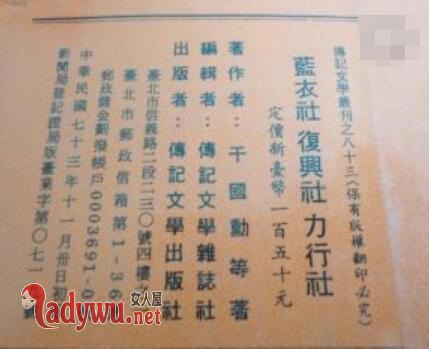 傳記文學叢刊之八十三(保有版權翻印必究)
藍衣社 復興社 力行社
定價新臺幣一百五十元
著作者：干國勳等著
編輯者：傳記文學雜誌社
出版者：傳記文學出版社
臺北市信義路二段二三〇號四樓
臺北市郵政信箱第1-36
郵政儲金劃撥帳戶0003691-0
中華民國七十三年十一月卅日初
新聞局登記證局版臺業字第〇七一
女人屋
Ladywu.net